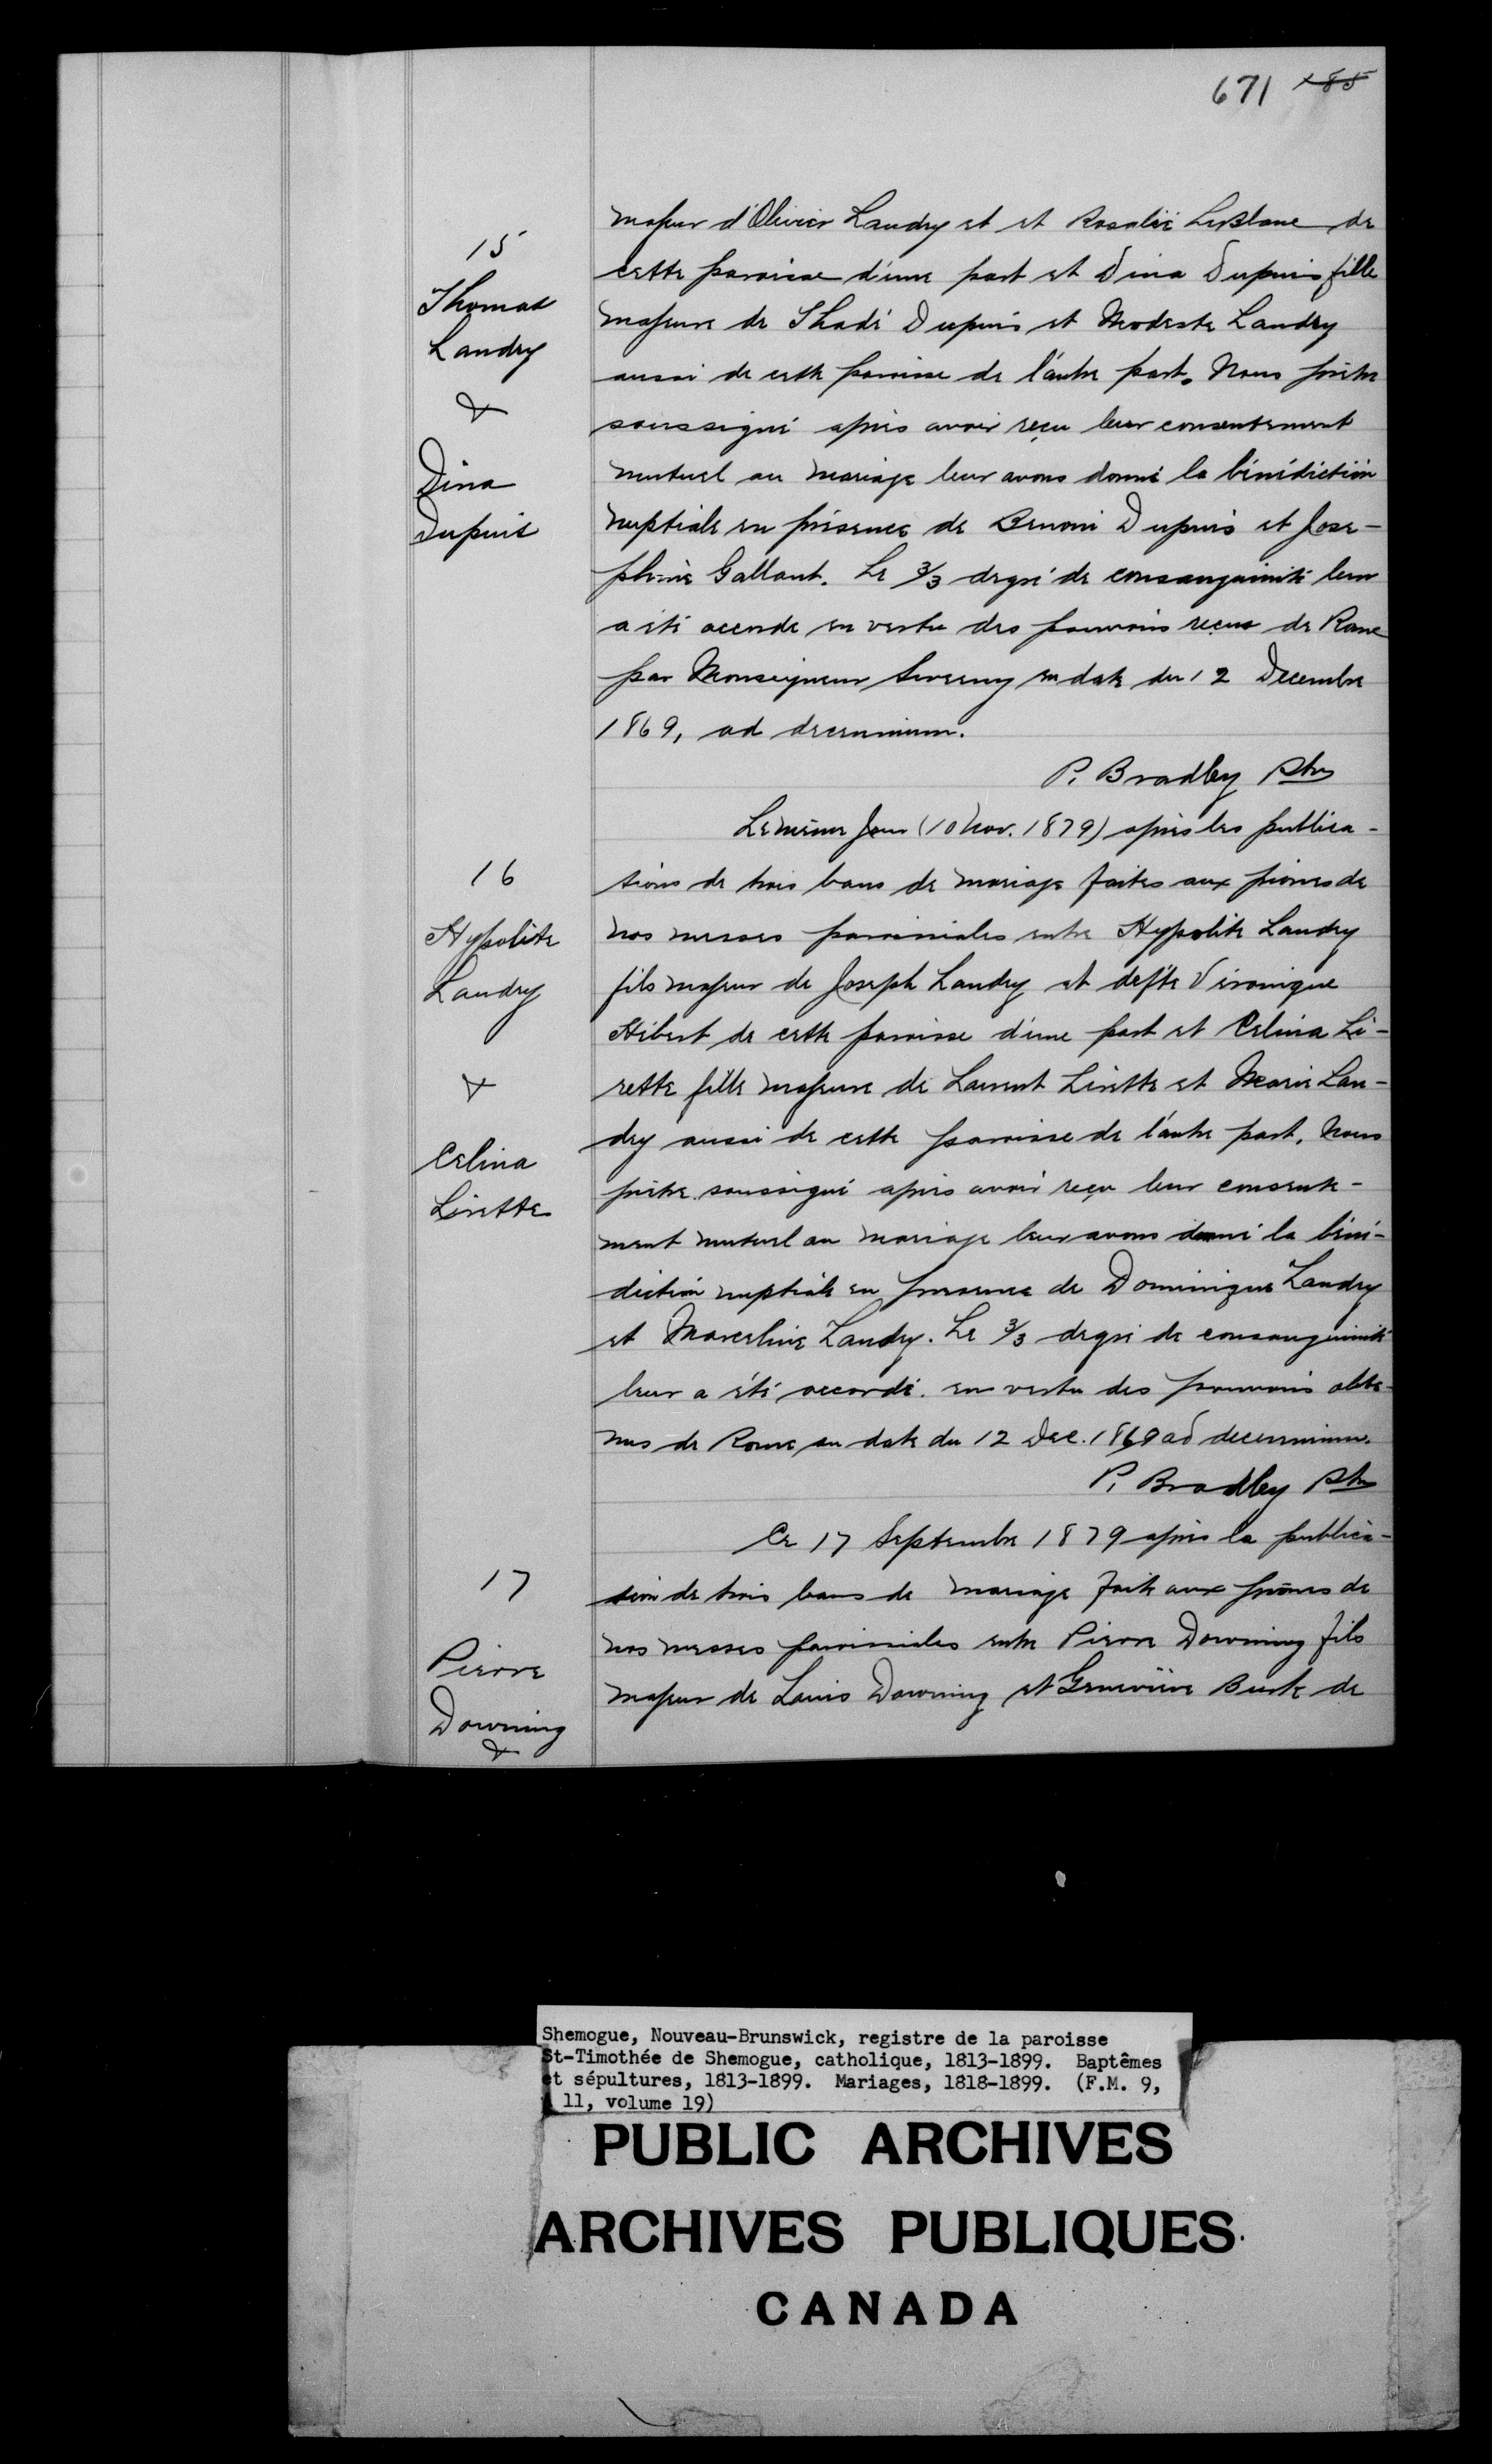 671 185
majeur d'Olivier Landry et et Rosalie LeBlanc de
15
cette paroisse d'une part et Dina Dupuis fille
Thomas
majeure de Thadé Dupuis et Modeste Landry
Landry
aussi de cette paroisse de l'autre part. Nous prêtre
&
soussigné après avoir reçu leur consentement
Dina
mutuel au mariage leur avons donné la bénédiction
Dupuis
nuptiale en présence de Benoni Dupuis et Jose-
phine Gallant. Le 3/3 degré de consanguinité leur
a été accordé en vertu des pouvoirs reçus de Rome
par Monseigneur Sweeny en date du 12 Decembre
1869, ad decennium.
P. Bradley Ptre
Le même Jour (10 Nov. 1879) après les publica-
16
tions de trois bans de mariage faites aux prônes de
Hypolite
nos messes paroissiales entre Hypolite Landry
Landry
fils majeur de Joseph Landry et defte Véronique
Hébert de cette paroisse d'une part et Celina Li-
&
rette fille majeure de Laurent Lirette et Marie Lan-
dry aussi de cette paroisse de l'autre part, Nous
Celina
prêtre soussigné après avoir reçu leur consente-
Lirette
ment mutuel au mariage leur avons donné la béné-
diction nuptiale en presence de Dominique Landry
et Marceline Landry. Le 3/3 degré de consanguinité
leur a été accordé en vertu des pouvoirs obte-
nus de Rome en date du 12 Dec. 1869 ad decennium.
P. Bradley Ptre
Ce 17 Septembre 1879 après la publica-
17
tion de trois bans de mariage faite aux prônes de
nos messes paroissiales entre Pierre Downing fils
Pierre
majeur de Louis Downing et Geneviève Burke de
Downing
&
Shemogue, Nouveau-Brunswick, registre de la paroisse
St-Timothée de Shemogue, catholique, 1813-1899. Baptêmes
et sépultures, 1813-1899. Mariages, 1818-1899. (F.M. 9,
11, volume 19)
PUBLIC ARCHIVES
ARCHIVES PUBLIQUES
CANADA